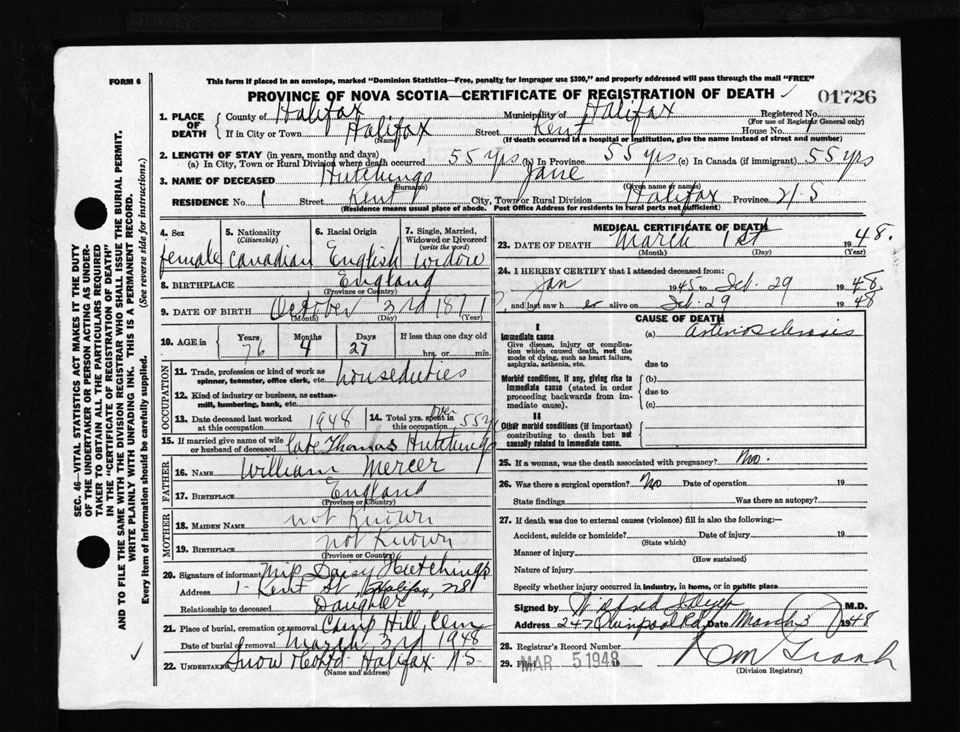 FORM 6
This form if placed in an envelope, marked "Dominion Statistics—Free, penalty for improper use $300," and properly addressed will pass through the mail "FREE"
PROVINCE OF NOVA SCOTIA—CERTIFICATE OF REGISTRATION OF DEATH
01726
1. PLACE OF DEATH
County of Halifax
Municipality of Halifax
Registered No.
(For use of Registrar General only)
If in City or Town Halifax Street Kent House No. 1
(Name) (If death occurred in a hospital or institution, give the name instead of street and number)
2. LENGTH OF STAY (in years, months and days)
(a) In City, Town or Rural Division where death occurred 55 yrs (b) In Province 55 yrs. (c) In Canada (if immigrant) 55 yrs
3. NAME OF DECEASED Hutchings Jane
(Surname) (Given name or names)
RESIDENCE No. 1 Street Kent City, Town or Rural Division Halifax Province N.S
(Residence means usual place of abode. Post Office Address for residents in rural parts not sufficient)
4. Sex
female
5. Nationality
(Citizenship)
Canadian
6. Racial Origin
English
7. Single, Married, Widowed or Divorced
(write the word)
widow
8. BIRTHPLACE England
(Province or Country)
9. DATE OF BIRTH October 3rd 1871
(Month) (Day) (Year)
10. AGE in
Years Months Days If less than one day old
76 4 27 hrs. or min.
OCCUPATION
11. Trade, profession or kind of work as houseduties
spinner, teamster, office clerk, etc.
12. Kind of industry or business, as cotton-
mill, lumbering, bank, etc.
13. Date deceased last worked at this occupation 1948
14. Total yrs. spent in this occupation over 55 yrs
15. If married give name of wife or husband of deceased late Thomas Hutchings
FATHER
16. NAME William Mercer
17. BIRTHPLACE England
(Province or Country)
MOTHER
18. MAIDEN NAME not known
19. BIRTHPLACE not known
(Province or Country)
20. Signature of informant Miss Daisy Hutchings
Address 1 - Kent St, Halifax, NS
Relationship to deceased Daughter
21. Place of burial, cremation or removal Camp Hill Cem
Date of burial or removal March 3rd 1948
22. UNDERTAKER Snow Halifax N.S.
(Name and address)
MEDICAL CERTIFICATE OF DEATH
23. DATE OF DEATH March 1st 1948.
(Month) (Day) (Year)
24. I HEREBY CERTIFY that I attended deceased from:
Jan 1945 to Feb. 29 1948
and last saw her alive on Feb. 29 1948
CAUSE OF DEATH
I
Immediate cause (a) arteriosclerosis
Give disease, injury or complication which caused death, not the mode of dying, such as heart failure, asphyxia, asthenia, etc.
due to
Morbid conditions, if any, giving rise to immediate cause (stated in order proceeding backwards from immediate cause).
(b)
due to
(c)
II
Other morbid conditions (if important) contributing to death but not causally related to immediate cause.
25. If a woman, was the death associated with pregnancy? No.
26. Was there a surgical operation? No Date of operation 19
State findings Was there an autopsy?
27. If death was due to external causes (violence) fill in also the following:—
Accident, suicide or homicide? Date of injury 19
(State which)
Manner of injury
(How sustained)
Nature of injury
Specify whether injury occurred in industry, in home, or in public place
Signed by M.D.
Address 247 Quinpool Rd. Date March 3 1948
28. Registrar's Record Number
29. Filed MAR 5 1948
(Division Registrar)
SEC. 46—VITAL STATISTICS ACT MAKES IT THE DUTY
OF THE UNDERTAKER OR PERSON ACTING AS UNDER-
TAKER TO OBTAIN ALL THE PARTICULARS REQUIRED
IN THE "CERTIFICATE OF REGISTRATION OF DEATH"
AND TO FILE THE SAME WITH THE DIVISION REGISTRAR WHO SHALL ISSUE THE BURIAL PERMIT.
WRITE PLAINLY WITH UNFADING INK. THIS IS A PERMANENT RECORD.
Every item of information should be carefully supplied. (See reverse side for instructions.)